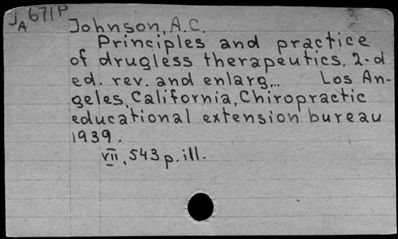 JA671P
Johnson, A.C.
Principles and practice
of drugless therapeutics. 2-d
ed. rev. and enlarg... Los An-
geles, California, Chiropractic
educational extension bureau
1939.
VII, 543 p. ill.